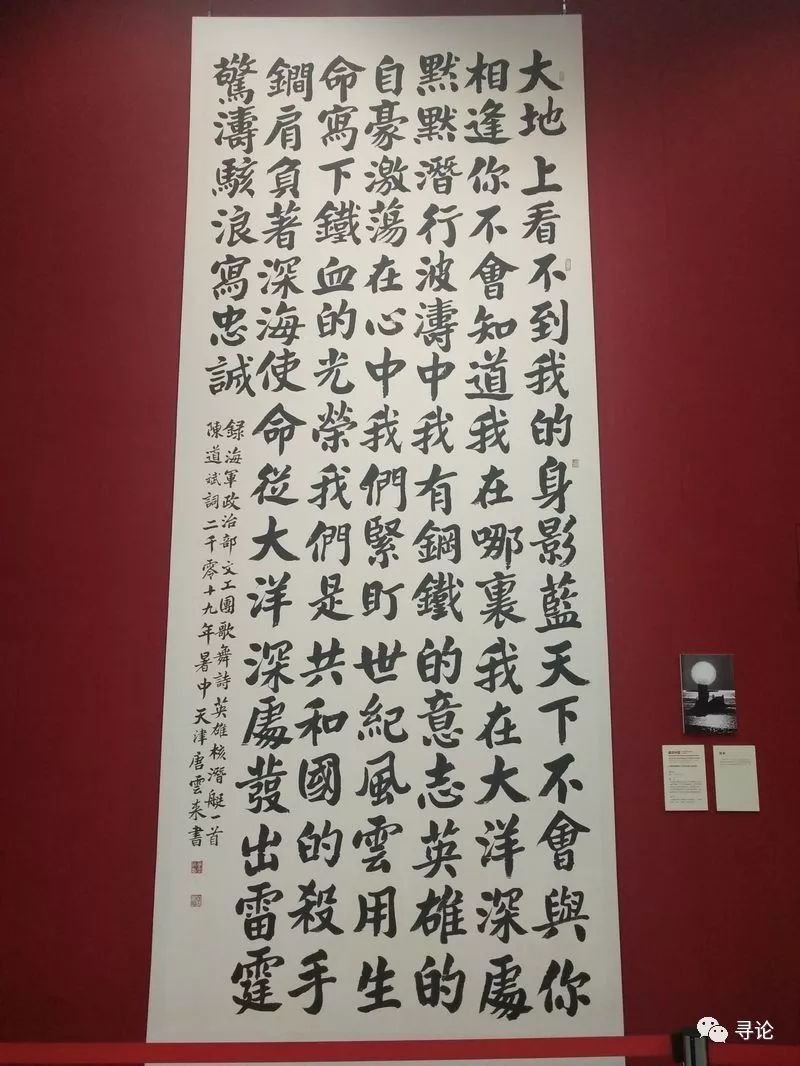 大地上看不到我的身影藍天下不會與你
相逢你不會知道我在哪裏我在大洋深處
默默潛行波濤中我有鋼鐵的意志英雄的
自豪激蕩在心中我們緊盯世紀風雲用生
命寫下鐵血的光榮我們是共和國的殺手
鐧肩負著深海使命從大洋深處發出雷霆
驚濤駭浪寫忠誠
録海軍政治部文工團歌舞詩英雄核潛艇一首
陳道斌詞二千零十九年暑中天津唐雲来書
寻论